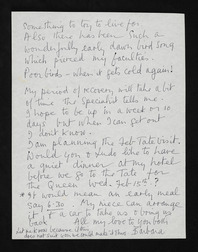 Something to try to live for.
Also there has been such a
wonderfully early dawn bird song
which pierced my faculties.
Poor birds – when it gets cold again!
My period of recovery will take a bit
of time the Specialist tells me.
I hope to be up in a week or 10
days but when I can get out
I don't know.
I am planning the Feb Tate visit.
Would you & like to have
a quiet dinner at my hotel
before we go to the Tate for
the Queen Wed. Feb 15th?
* It would mean an early meal
say 6.30. My niece can arrange
for a car to take us & bring us
back All my love to you both
Barbara
* let me know because if it
does not suit you we could make it then